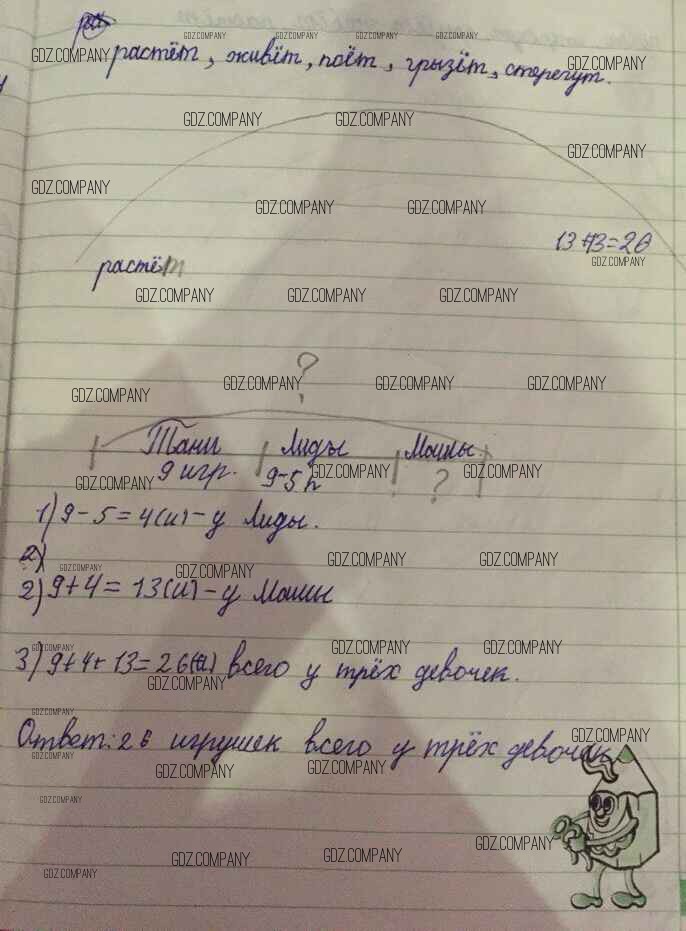 растёт, живёт, поёт, грызёт, стерегут.
13+13=26
растёт
?
Тани Лиды Маши
9 игр. 9-5 ?
1) 9-5=4(и)-у Лиды.
2)
2) 9+4=13(и)-у Маши
3) 9+4+13=26(и) всего у трёх девочек.
Ответ: 26 игрушек всего у трёх девочек
GDZ.COMPANY